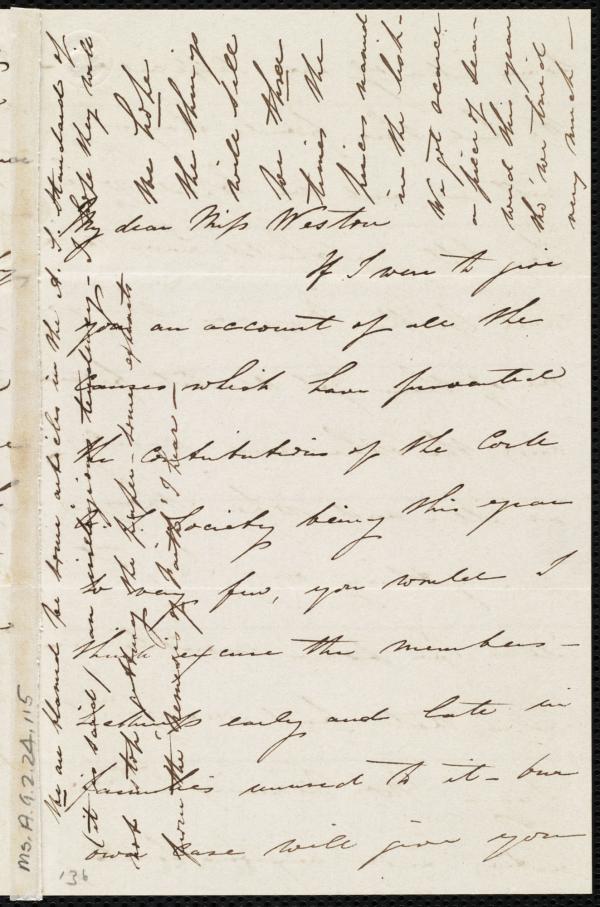 My dear Miss Weston
If I were to give
you an account of all the
causes which have prevented
the contributions of the Cork
A. S. Society being this year
so very few, you would I
think excuse the members -
sickness early and late in
families unused to it - our
own case will give you
We hope
the things
will sell
for three
times the
prices named
in the list -
We got scarce
a piece of sea-
weed this year
tho' we tried
very much -
We are blamed for some articles in the A. S. Standard of
(it is said) an irreligious tendency - I hope they will
not stop getting the paper - some extracts
from the Nemesis of Faith I hear -
Ms. A. 9. 2. 24. 115
136